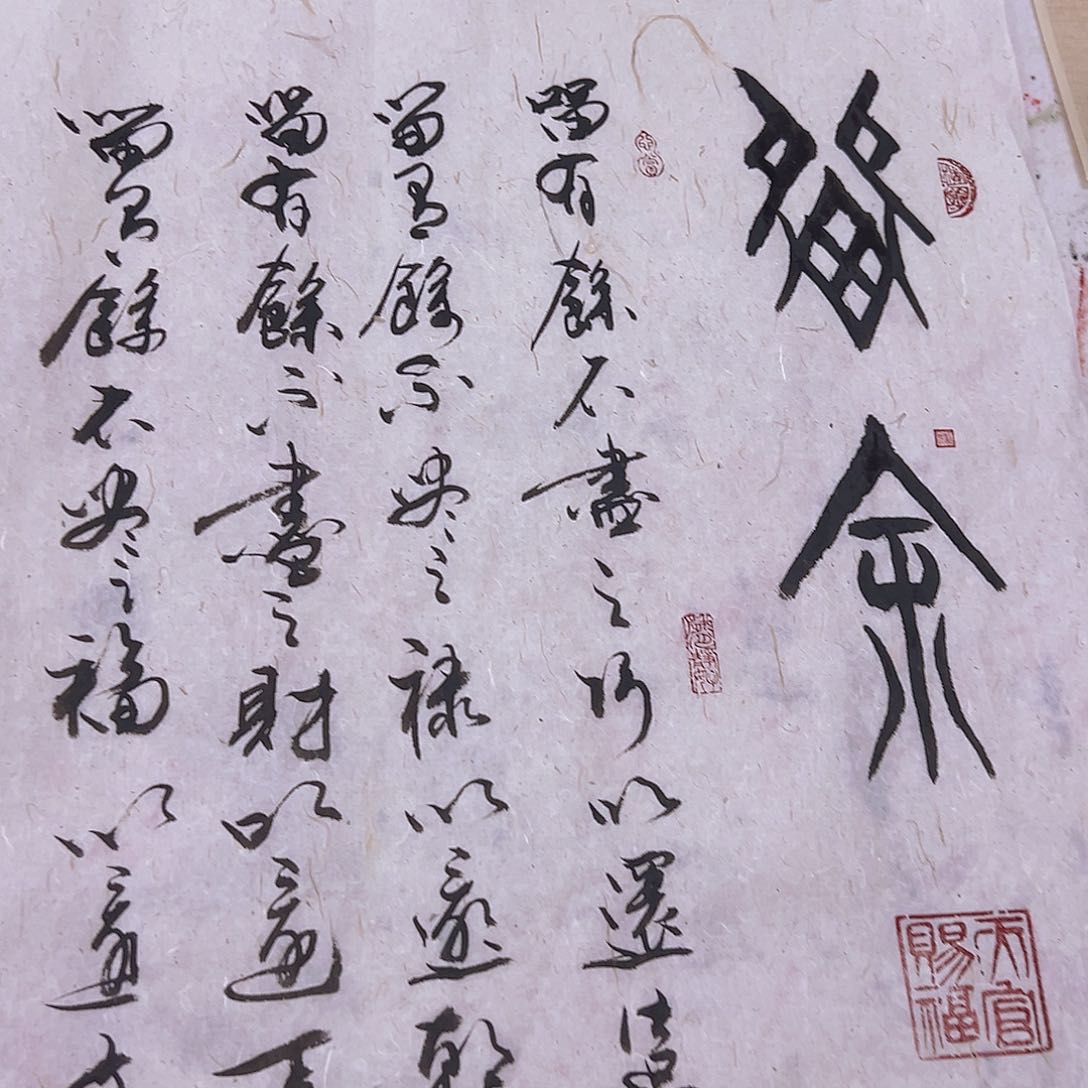 留余
留有餘不盡之巧以還造
留有餘不盡之祿以還朝
留有餘不盡之財以還百
留有餘不盡之福以還
天官賜福